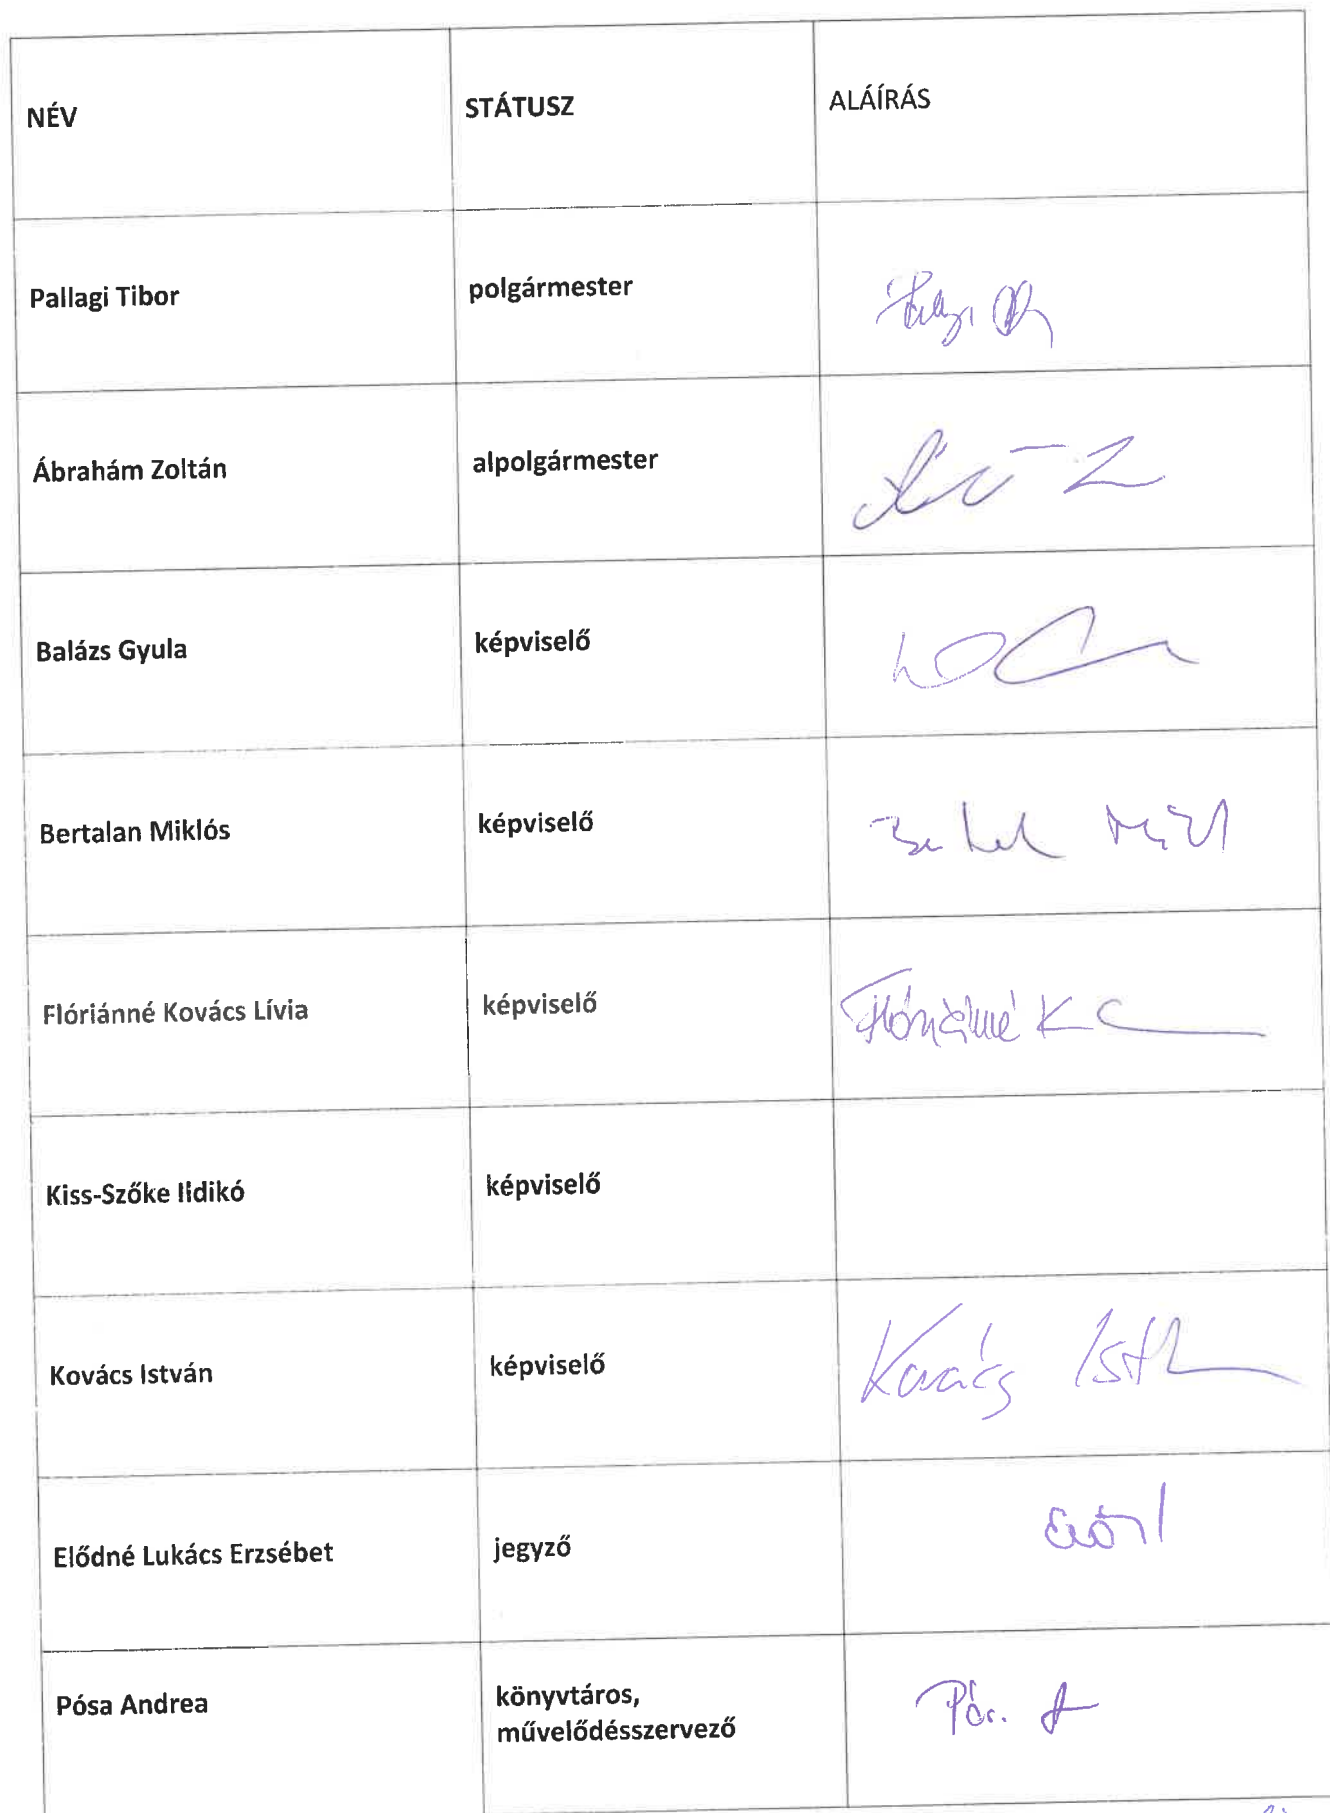 NÉV STÁTUSZ ALÁÍRÁS
Pallagi Tibor polgármester
Ábrahám Zoltán alpolgármester
Balázs Gyula képviselő
Bertalan Miklós képviselő
Flóriánné Kovács Lívia képviselő Flóriánné K
Kiss-Szőke Ildikó képviselő
Kovács István képviselő Kovács
Elődné Lukács Erzsébet jegyző
Pósa Andrea könyvtáros,
művelődésszervező